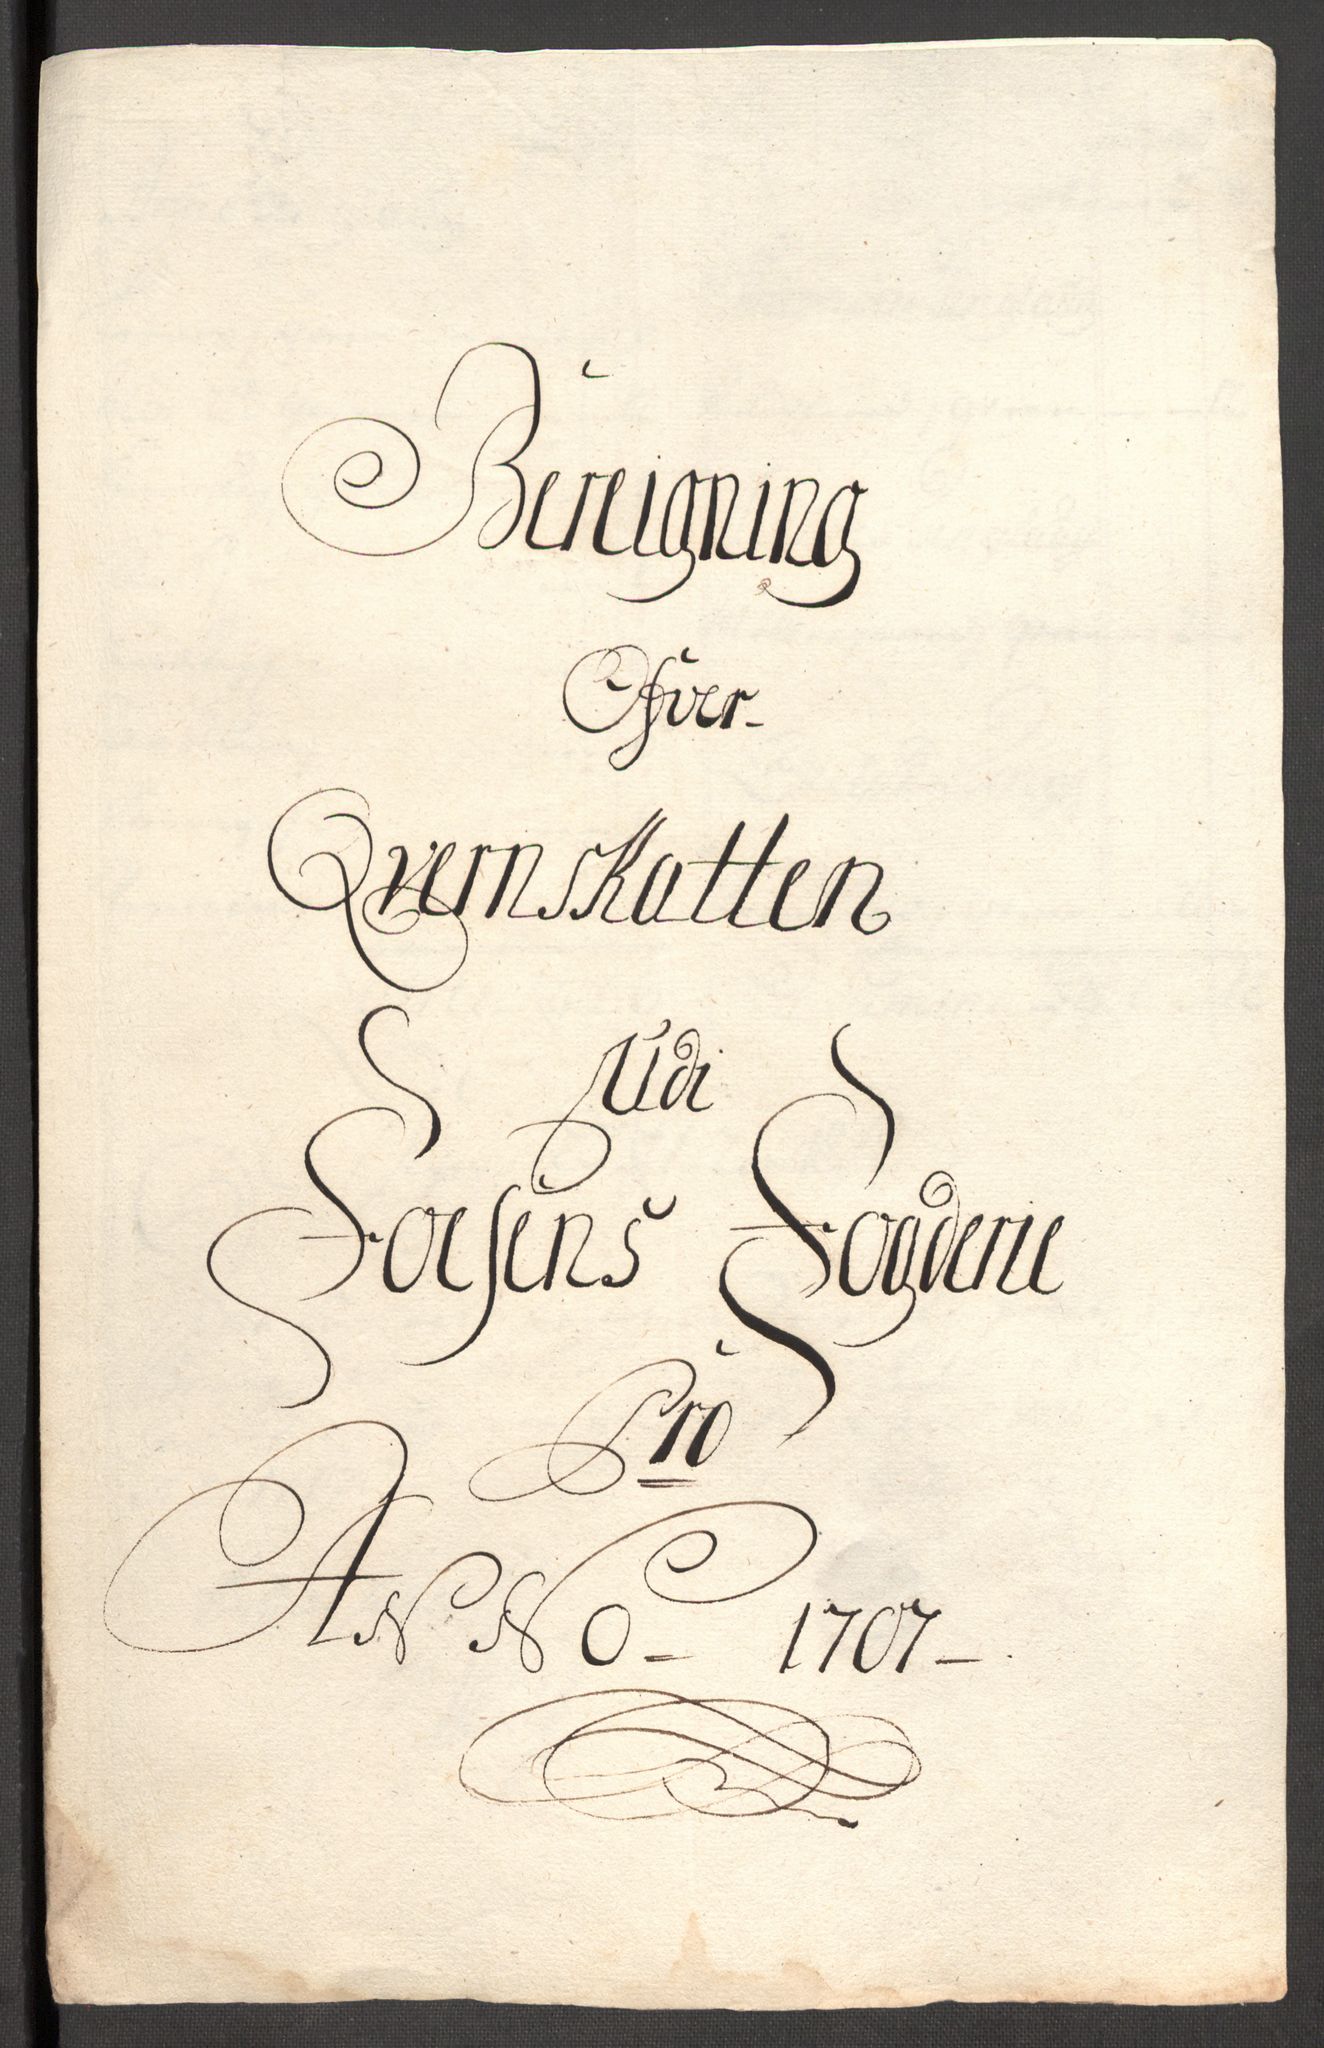 Bereigning
Ofver
Qvernskatten
Udi
Foesens Fogderie
Pro
ANNO 1707